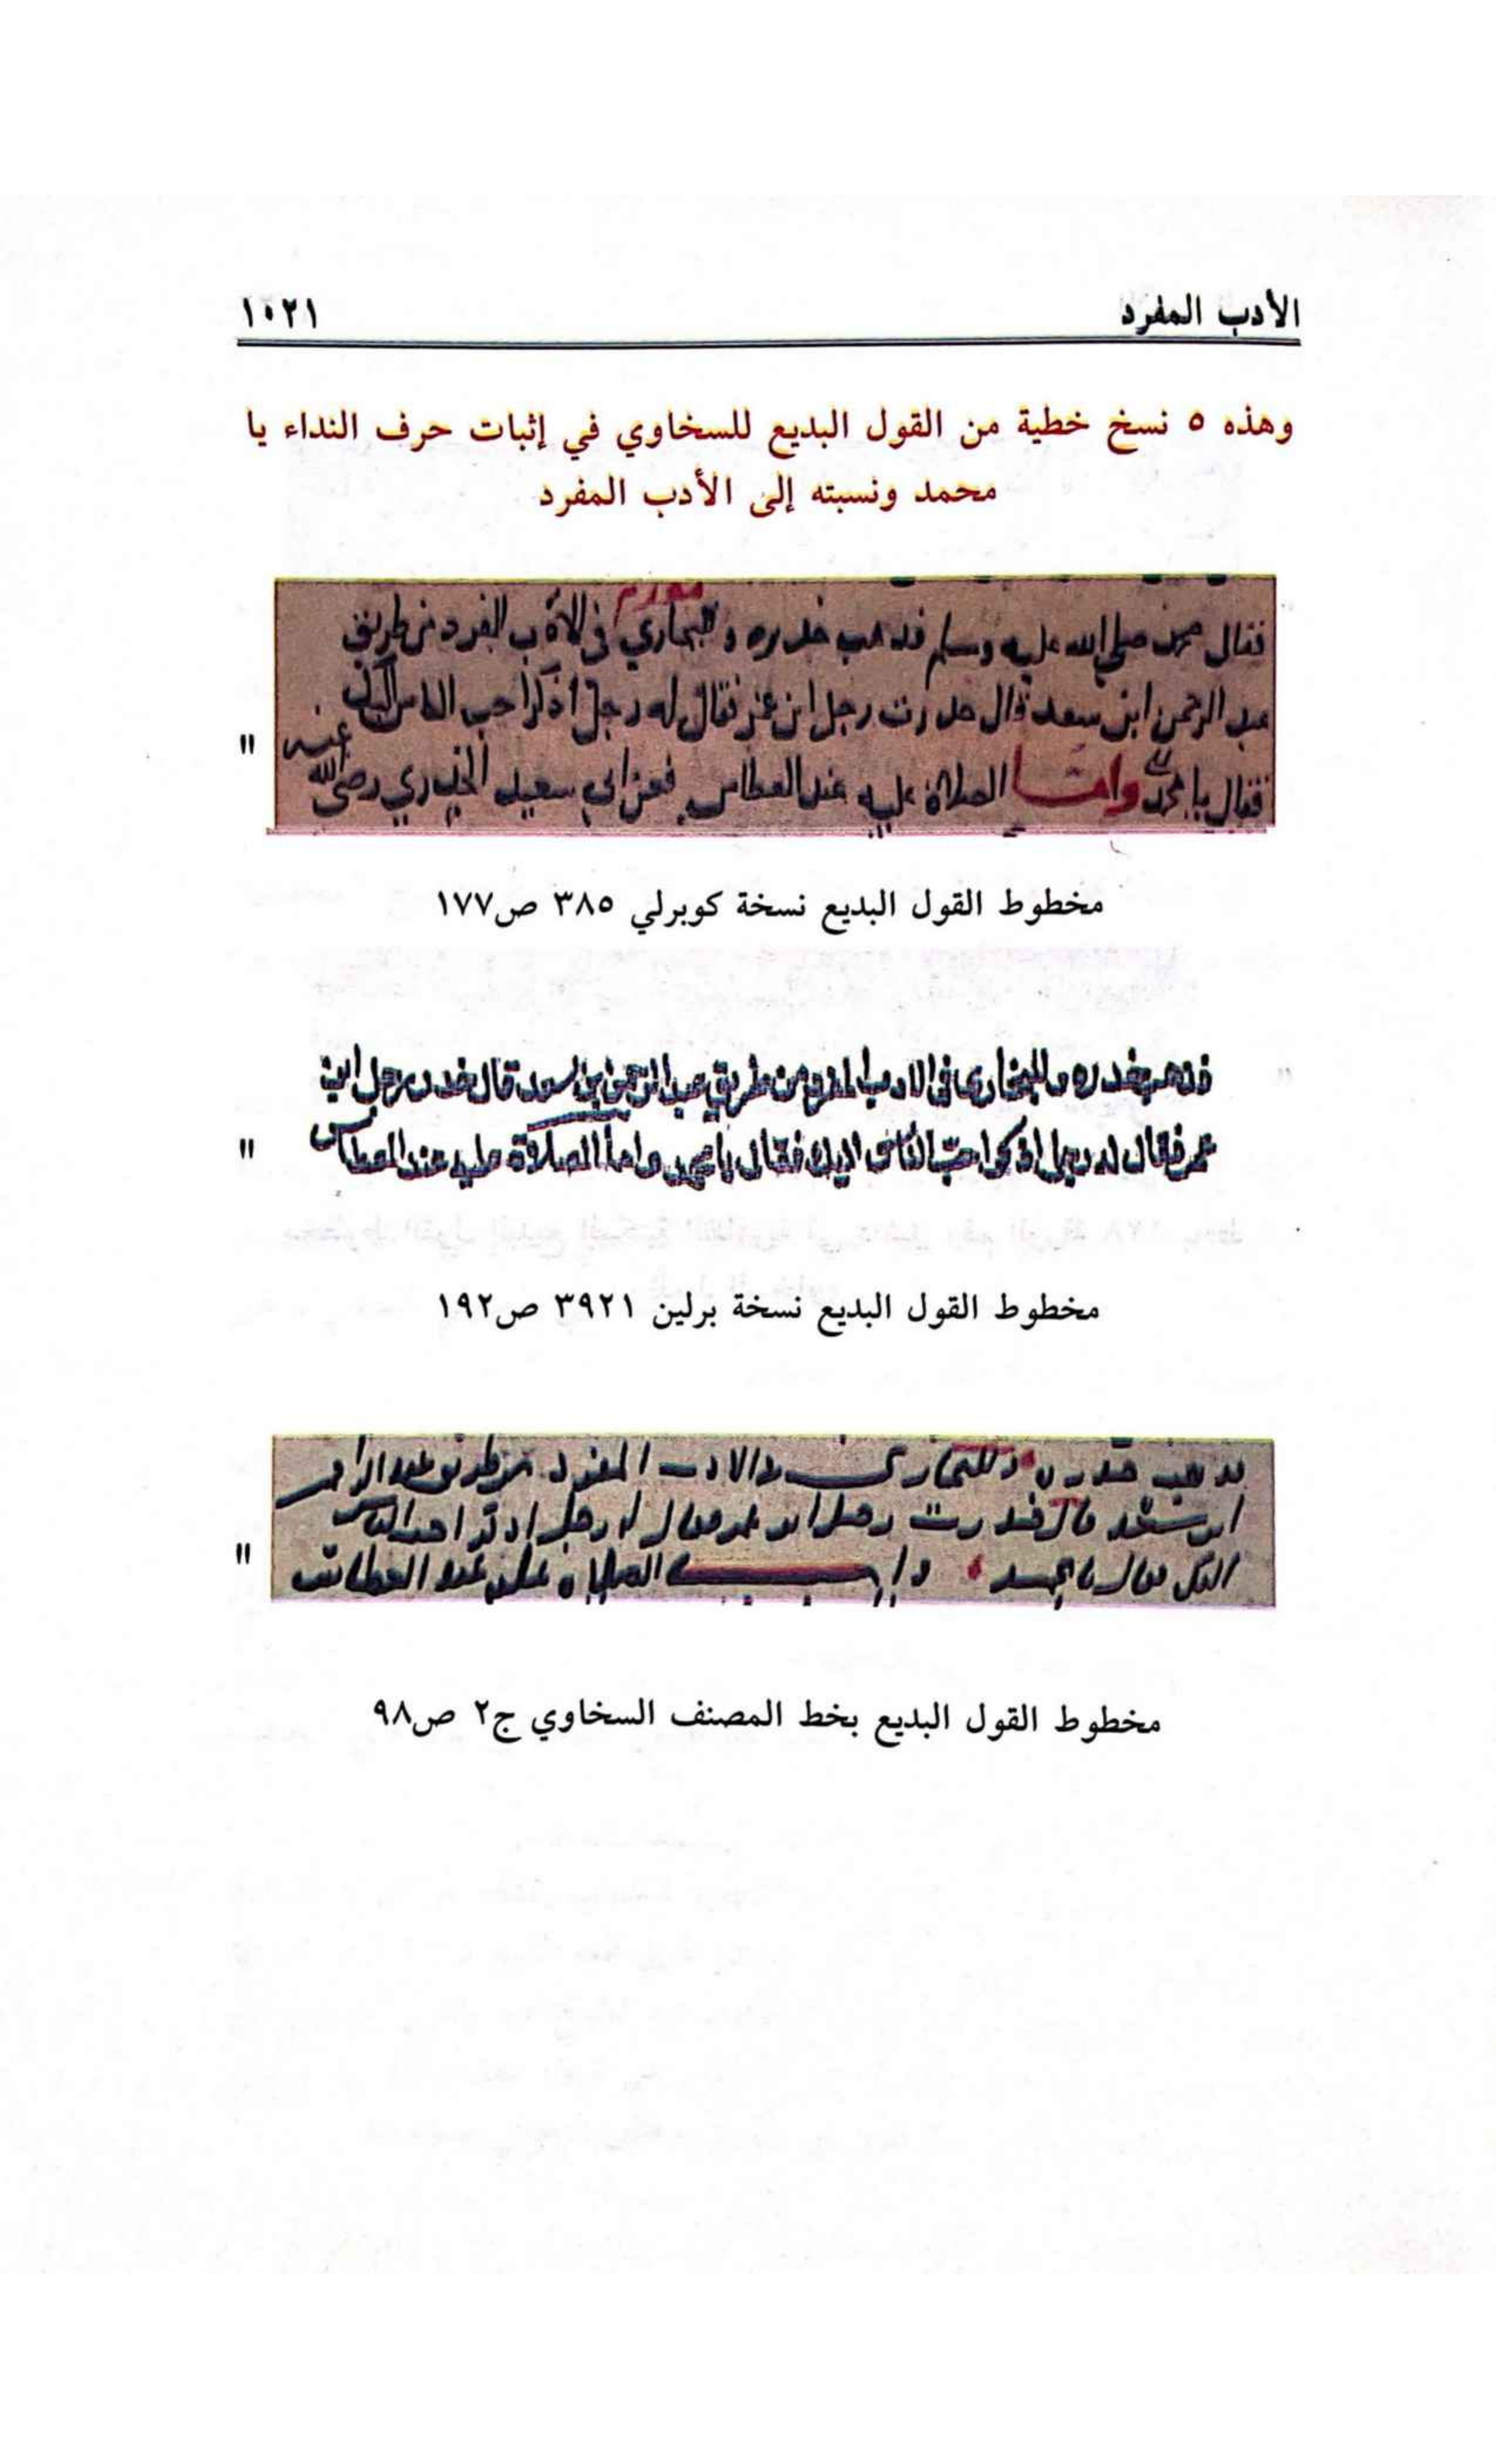 الأدب المفرد
١٠٢١
وهذه ٥ نسخ خطية من القول البديع للسخاوي في إثبات حرف النداء يا
محمد ونسبته إلى الأدب المفرد
فقال محمد صلى الله عليه وسلم فذهب خدره وللبخاري في الأدب المفرد من طريق
عبد الرحمن ابن سعد قال خدرت رجل ابن عمر فقال له رجل اذكر احب الناس اليك
فقال يا محمد واما الصلاة عليه عند العطاس فعن ابي سعيد الخدري رضي الله عنه
"
مخطوط القول البديع نسخة كوبرلي ٣٨٥ ص١٧٧
فذهب خدره وللبخاري في الادب المفرد من طريق عبد الرحمن بن سعد قال خدرت رجل ابن
عمر فقال له رجل اذكر احب الناس اليك فقال يا محمد واما الصلاة عليه عند العطاس
"
مخطوط القول البديع نسخة برلين ٣٩٢١ ص١٩٢
خدره وللبخاري في الادب المفرد من طريق
ابن سعد قال خدرت رجل ابن عمر فقال له رجل اذكر احب الناس
اليك فقال يا محمد واما الصلاة عليه عند العطاس
"
مخطوط القول البديع بخط المصنف السخاوي ج٢ ص٩٨